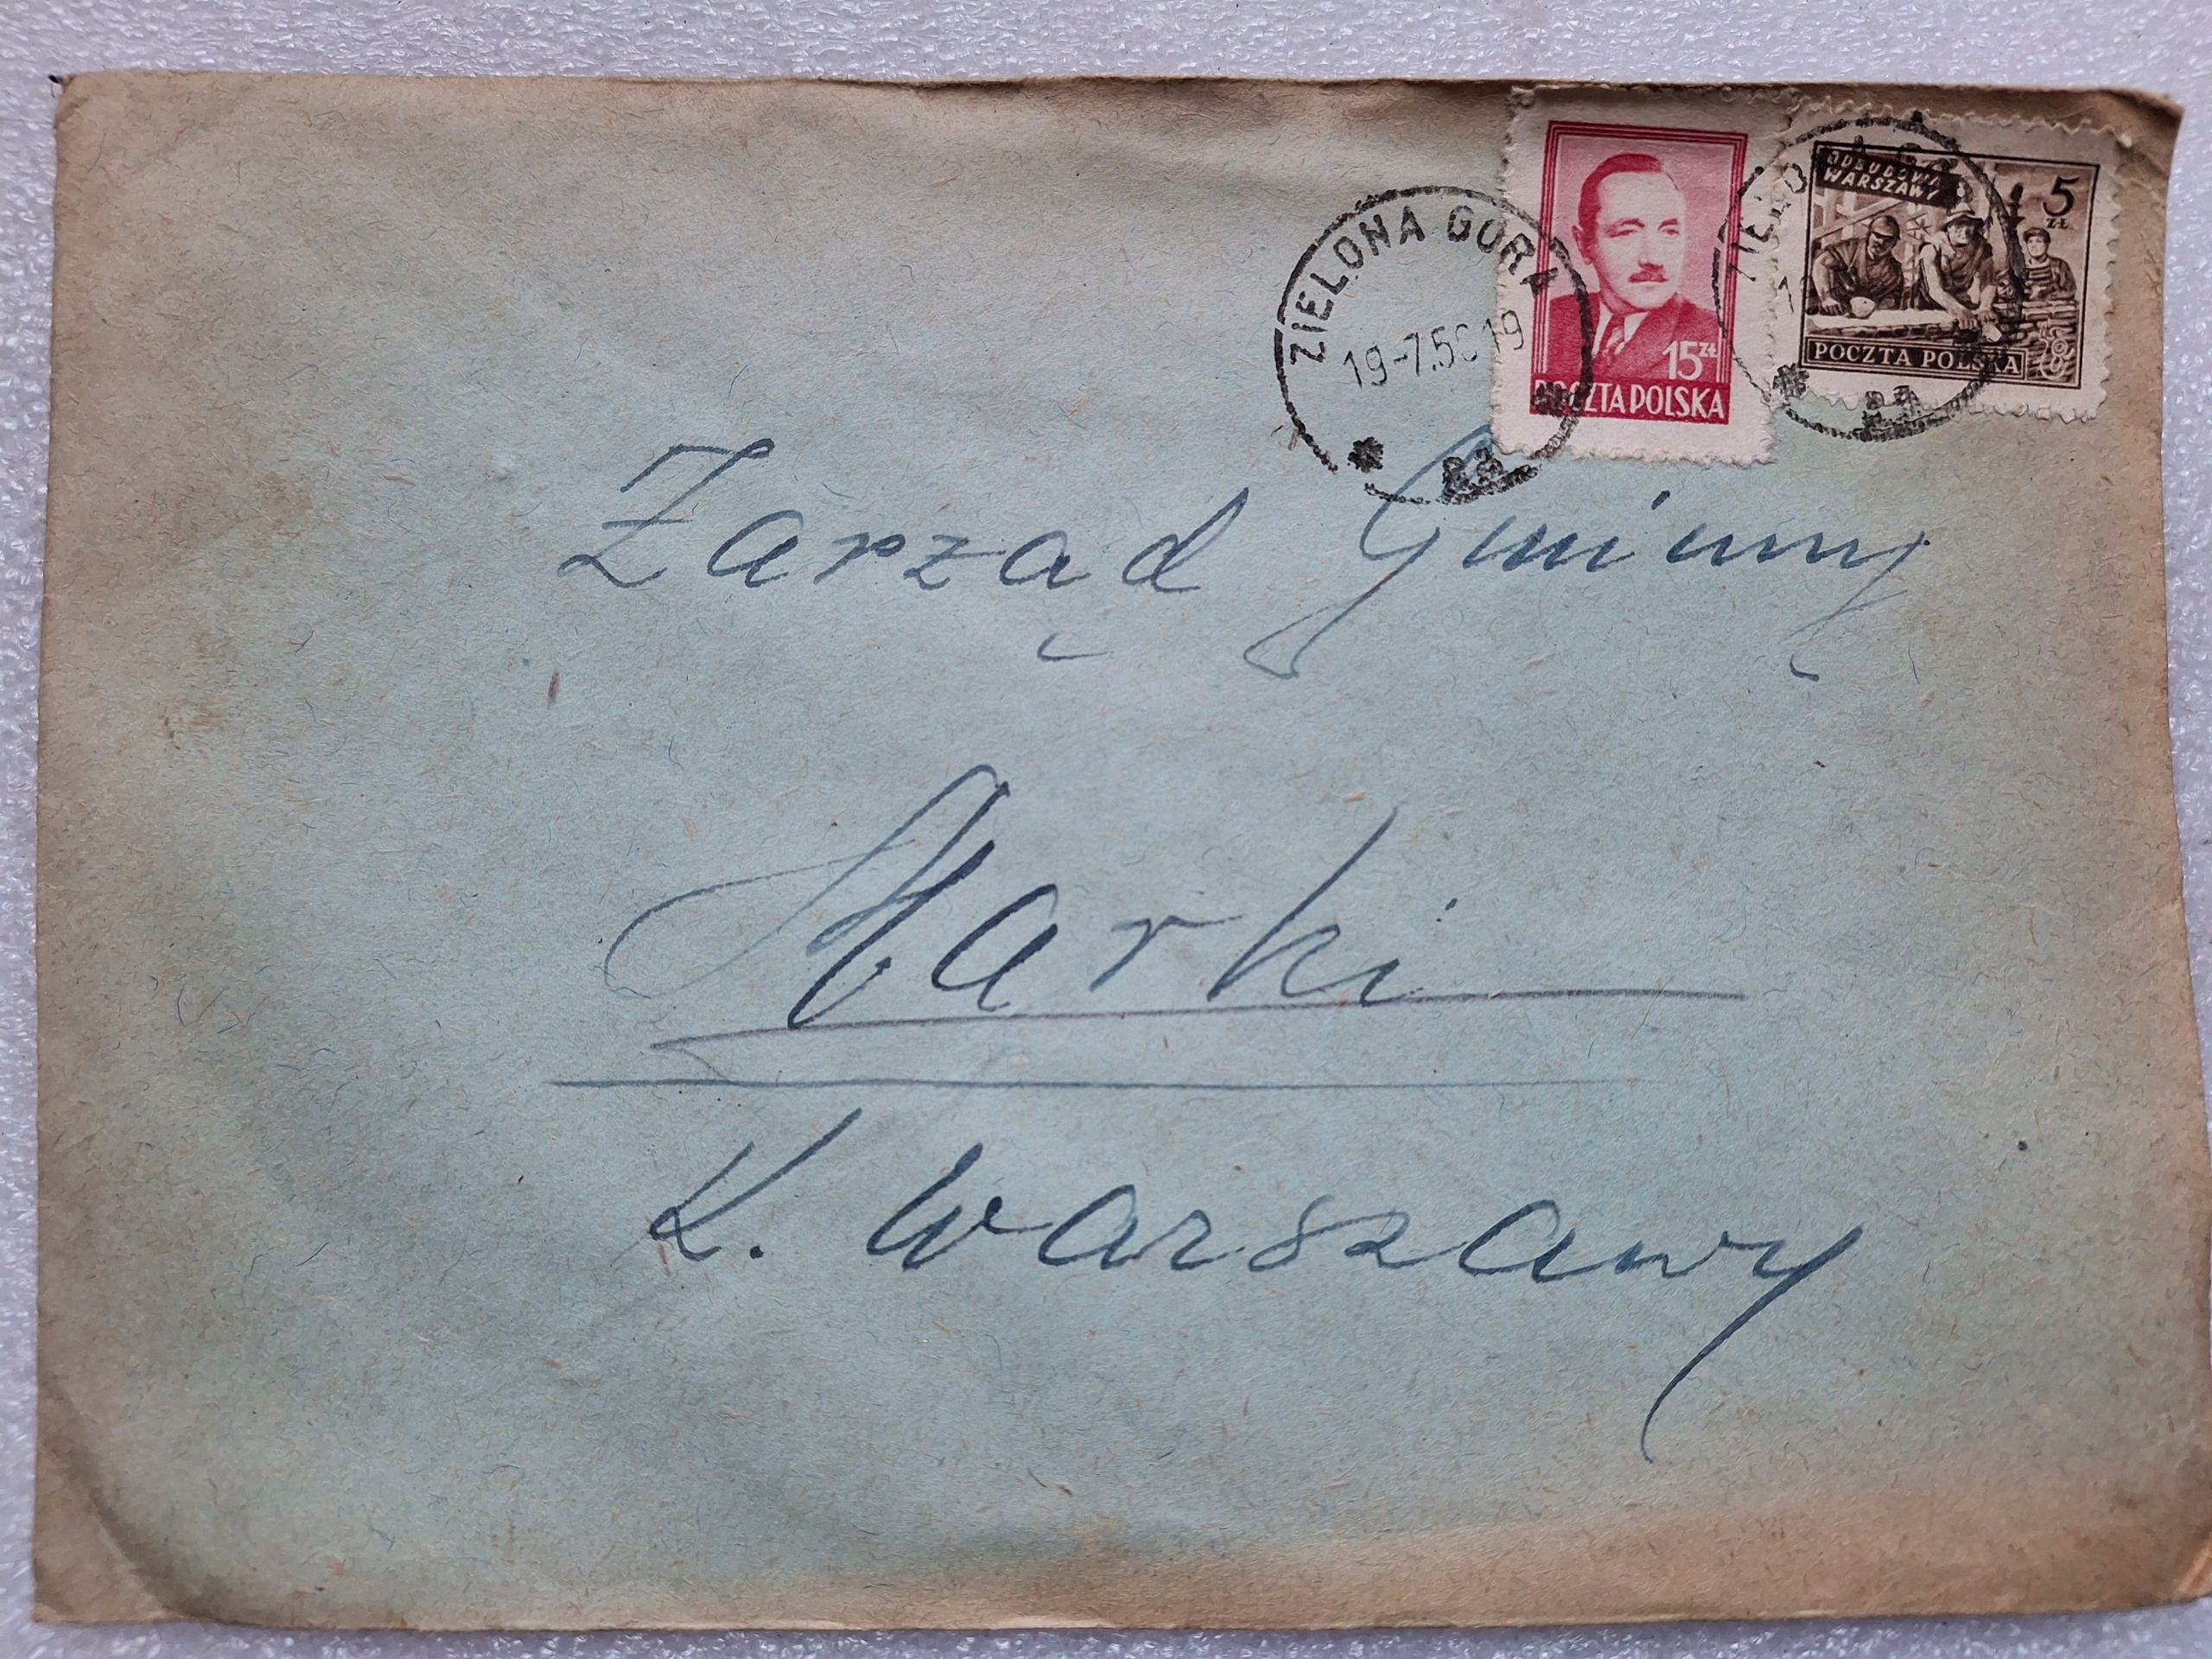 ZIELONA GÓRA
19-7.50 19
15 ZŁ
POCZTA POLSKA
ODBUDOWA
WARSZAWY
5
ZŁ
POCZTA POLSKA
Zarząd Gminny
Marki
K. Warszawy